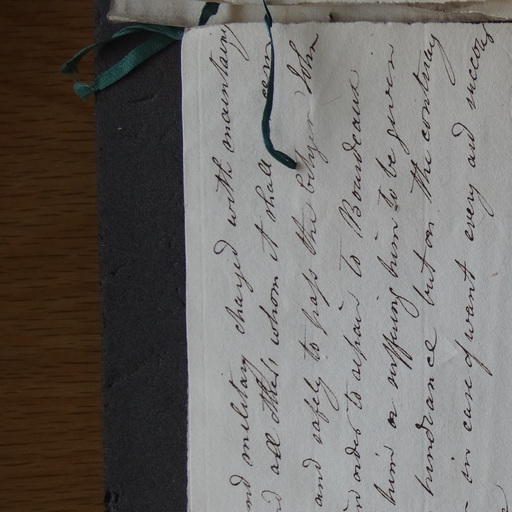 and military charged with maintaining
and all others whom it shall
and safely to pass the Citizen John
in order to repair to Bourdeaux
him or suffering him to be given
hindrance but on the contrary
in case of want every aid succour